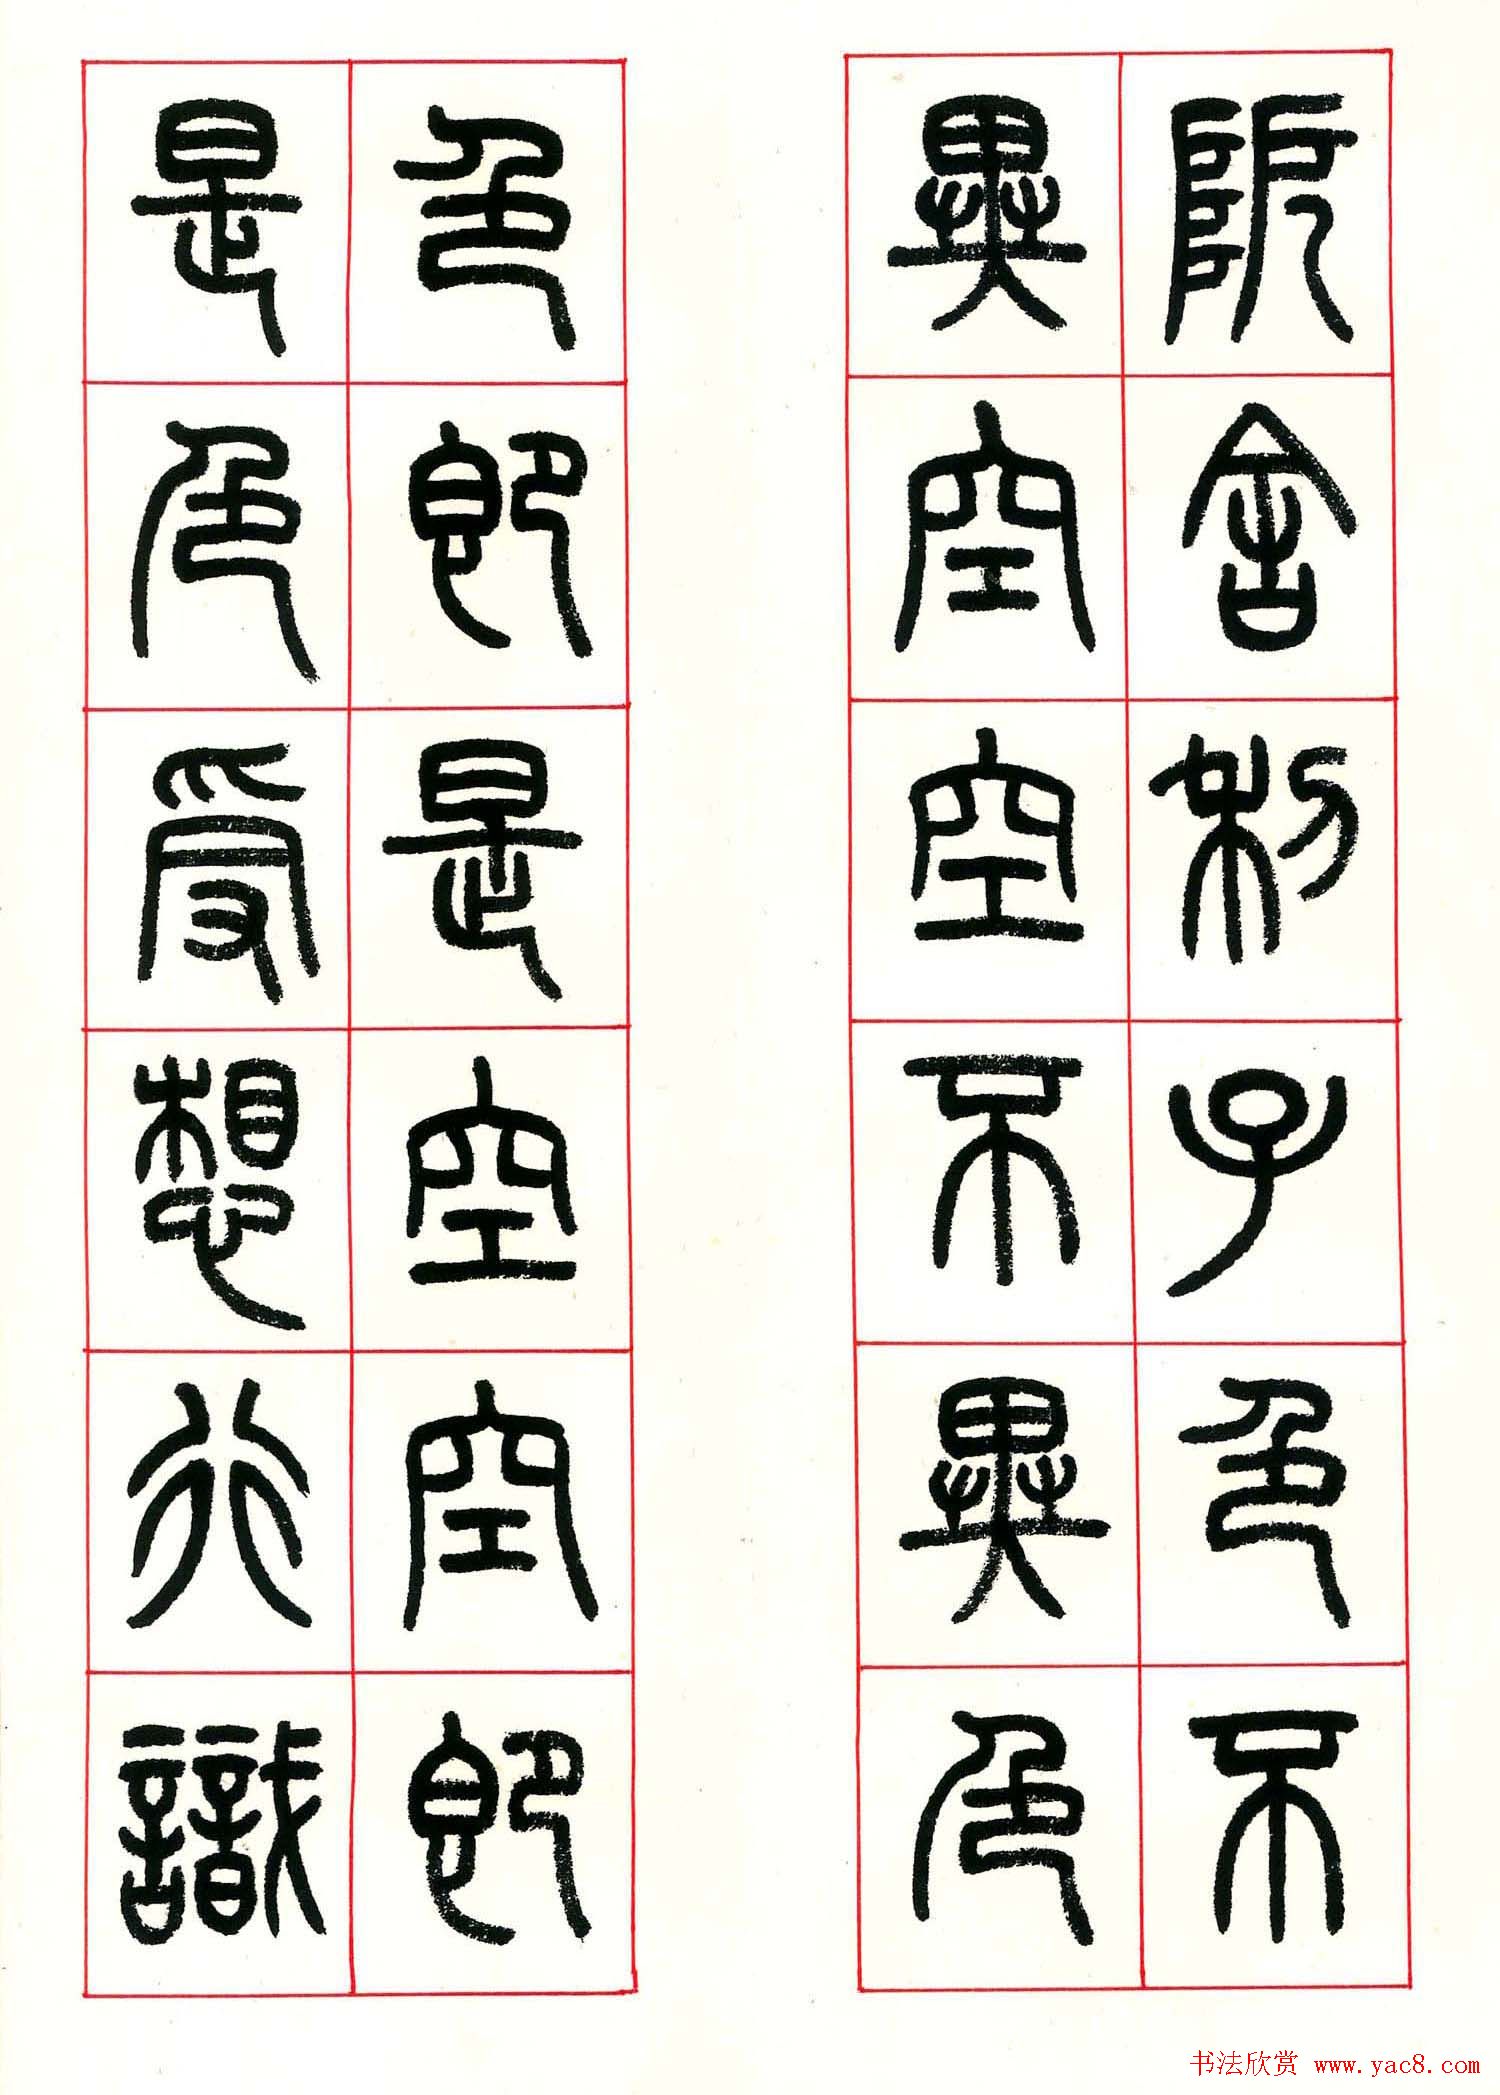 阸舍利子色不
異空空不異色
色即是空空即
是色受想行識
书法欣赏 www.yac8.com